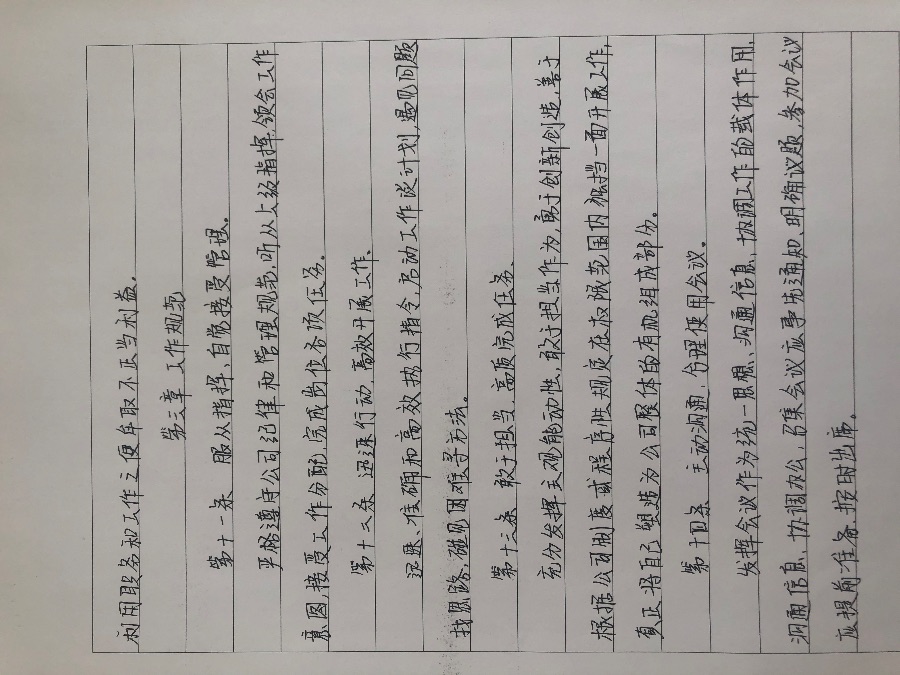 利用服务和工作之便牟取不正当利益。
第三章 工作规范
第十一条 服从指挥、自觉接受管理。
严格遵守公司纪律和管理规范,听从上级指挥,领会工作
意图,接受工作分配,完成岗位各项任务。
第十二条 迅速行动、高效开展工作。
迅速、准确和高效执行指令,启动工作设计划,遇见问题
找思路,碰见困难寻方法。
第十三条 敢于担当、高质完成任务。
充分发挥主观能动性,敢于担当作为,勇于创新创造,善于
根据公司制度或程序性规定在权限范围内独挡一面开展工作,
真正将自己塑造为公司整体的有机组成部份。
第十四条 主动沟通,合理使用会议。
发挥会议作为统一思想、沟通信息、协调工作的载体作用,
沟通信息、协调办公,召集会议应事先通知、明确议题,参加会议
应提前准备、按时出席。